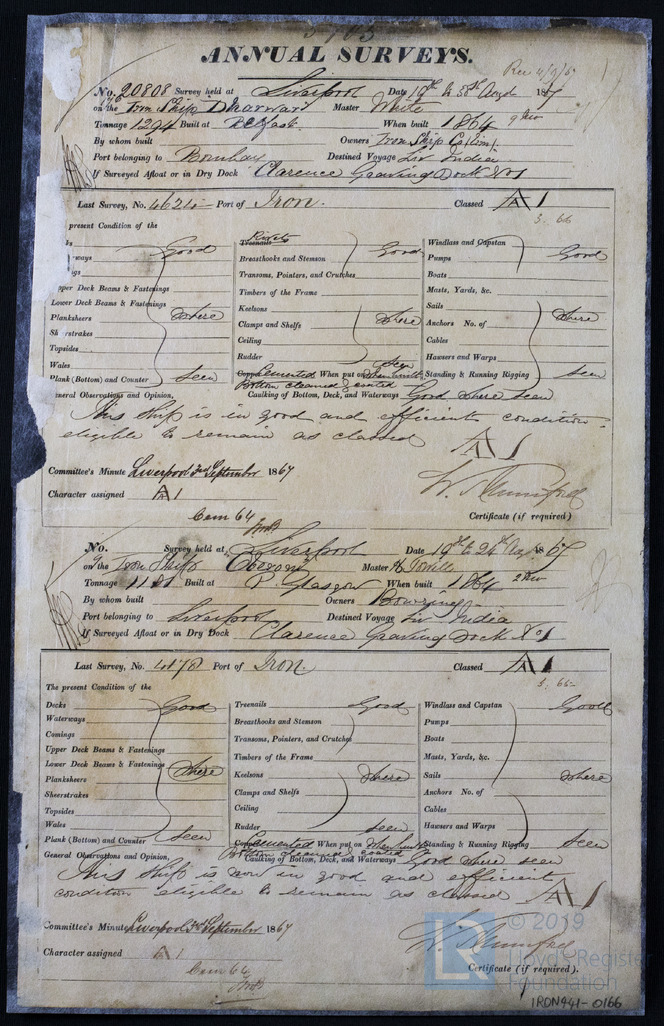 5703
ANNUAL SURVEYS.
Rec 4/9/67
No. 20808 Survey held at Liverpool Date 19th to 30th Augt 1867
on the Iron Ship Dharwar Master White
Tonnage 1294 Built at Belfast When built 1864
By whom built Owners Iron Ship Co Limd
Port belonging to Bombay Destined Voyage Liv India
If Surveyed Afloat or in Dry Dock Clarence Graving Dock No 1
Last Survey, No. 4624 Port of Iron. Classed A 1
present Condition of the
Good Rivets Good Windlass and Capstan Good
rways Treenails Pumps
ngs Breasthooks and Stemson Boats
pper Deck Beams & Fastenings Transoms, Pointers, and Crutches Masts, Yards, &c.
Lower Deck Beams & Fastenings Timbers of the Frame Sails
Planksheers where Keelsons where Anchors No. of where
Sh rstrakes Clamps and Shelfs Cables
Topsides Ceiling Hawsers and Warps
Wales Rudder seen Standing & Running Rigging seen
Plank (Bottom) and Counter seen Cemented When put on When built
Bottom cleaned & coated
eneral Observations and Opinion, Caulking of Bottom, Deck, and Waterways Good where seen
This Ship is in good and efficient condition
eligible to remain as classed A 1
Committee's Minute Liverpool 3rd September 1867
Character assigned A 1
W. Mumford
Certificate (if required)
Cem 64
No. Survey held at Liverpool Date 19th to 24th Aug 1867
on the Iron Ship Oberon Master
Tonnage 1181 Built at P. Glasgow When built 1864
By whom built Owners Bowring
Port belonging to Liverpool Destined Voyage Liv India
If Surveyed Afloat or in Dry Dock Clarence Graving Dock No 1
Last Survey, No. 4178 Port of Iron Classed A 1
The present Condition of the
Decks Good Treenails Good Windlass and Capstan Good
Waterways Breasthooks and Stemson Pumps
Comings Transoms, Pointers, and Crutches Boats
Upper Deck Beams & Fastenings Timbers of the Frame Masts, Yards, &c.
Lower Deck Beams & Fastenings where Keelsons where Sails where
Planksheers Clamps and Shelfs Anchors No. of
Sheerstrakes Ceiling Cables
Topsides Rudder seen Hawsers and Warps
Wales Cemented When put on When built Standing & Running Rigging seen
Plank (Bottom) and Counter seen Bottom cleaned & coated
General Observations and Opinion, Caulking of Bottom, Deck, and Waterways Good where seen
This Ship is now in good and efficient
condition eligible to remain as classed A 1
Committee's Minute Liverpool 3rd September 1867
Character assigned A 1
W. Mumford
Certificate (if required).
Cem 64
LR
© 2019
Lloyd's Register
Foundation
IRON441-0166